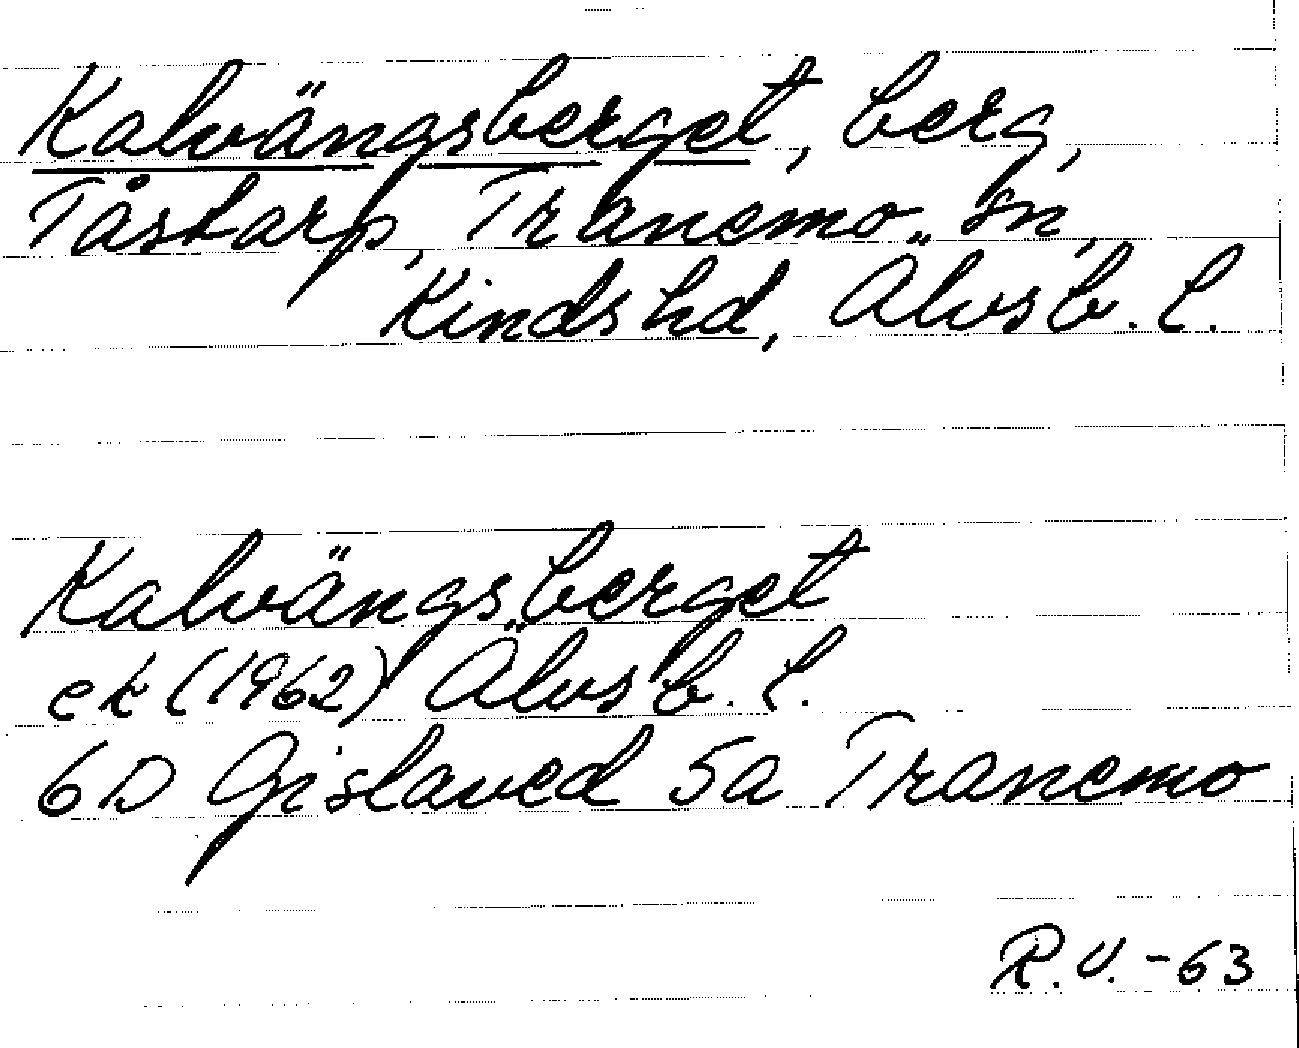 Kalvängsberget, berg,
Tåstarp, Tranemo sn,
Kinds hd, Älvsb. l.
Kalvängsberget
ek (1962) Älvsb. l.
6D Gislaved 5a Tranemo
R.U. -63